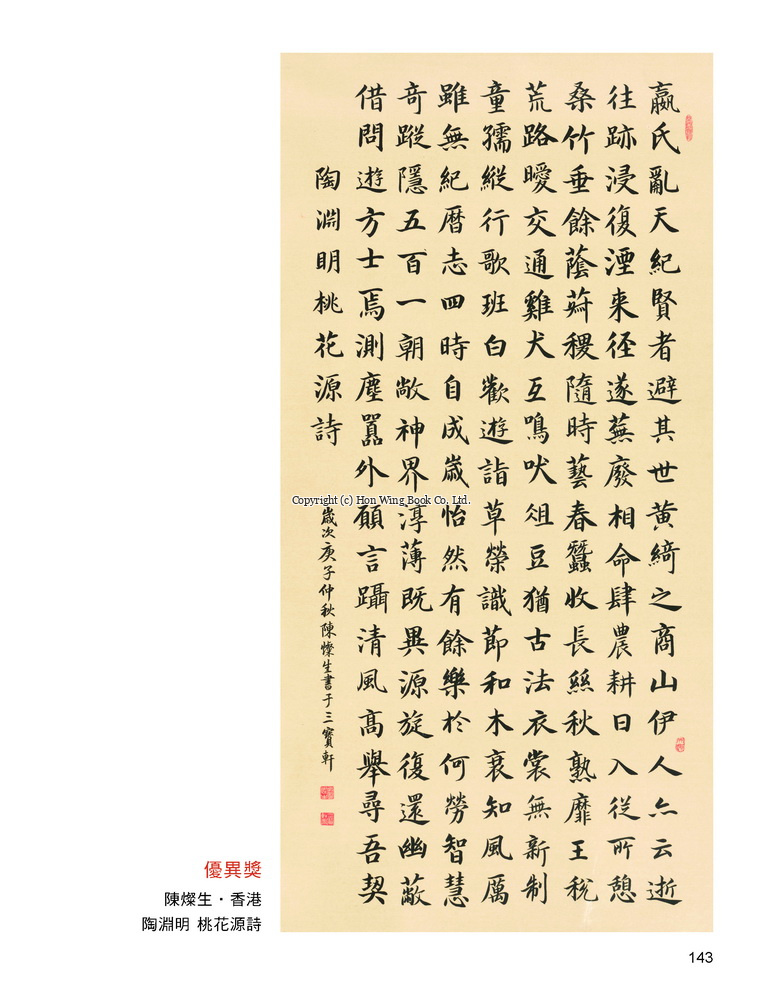 嬴氏亂天紀賢者避其世黄綺之商山伊人亦云逝
往跡浸復湮来徑遂蕪廢相命肆農耕日入從所憩
桑竹垂餘蔭菽稷隨時藝春蠶收長絲秋熟靡王税
荒路曖交通雞犬互鳴吠俎豆猶古法衣裳無新制
童孺縱行歌班白歡遊詣草榮識節和木衰知風厲
雖無紀曆志四時自成歲怡然有餘樂於何勞智慧
奇蹤隱五百一朝敞神界淳薄既異源旋復還幽蔽
借問遊方士焉測塵囂外願言躡清風高舉尋吾契
陶淵明桃花源詩
歲次庚子仲秋陳燦生書于三寶軒
Copyright (c) Hon Wing Book Co. Ltd.
優異獎
陳燦生・香港
陶淵明 桃花源詩
143